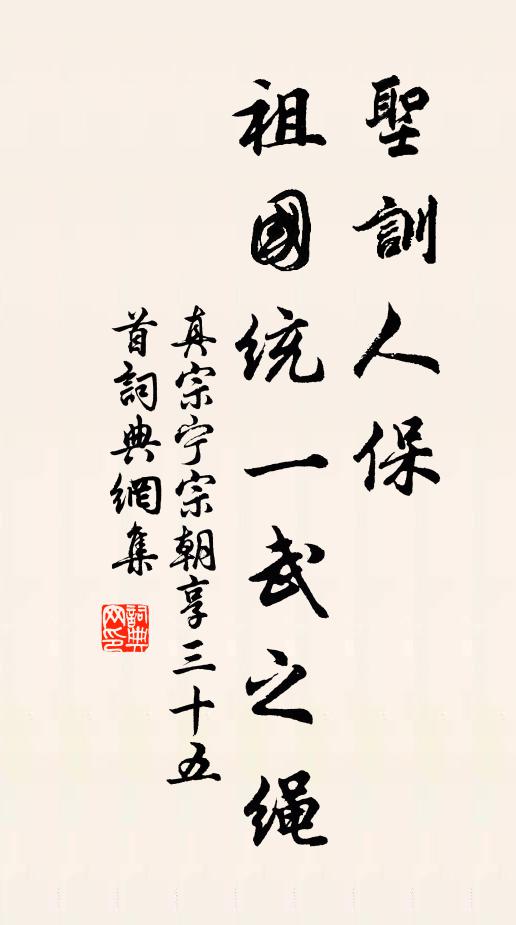 聖訓人保
祖國統一武之绳
真宗宁宗朝享三十五
首詞典網集
詞典網印